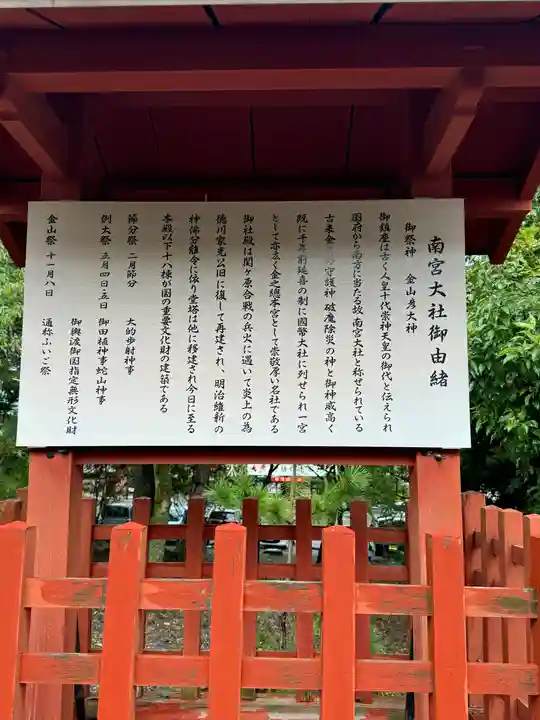 南宮大社御由緒
御祭神 金山彦大神
御鎮座は古く人皇十代崇神天皇の御代と伝えられ
国府から南方に当たる故 南宮大社と称せられている
古来金 守護神 破魔除災の神と御神威高く
既に千年前延喜の制に國幣大社に列せられ一宮
として亦広く金之總本宮として崇敬厚い名社である
御社殿は関ヶ原合戦の兵火に遇いて炎上の為
徳川家光公旧に復して再建され、明治維新の
神佛分離令に依り堂塔は他に移建され今日に至る
本殿以下十八棟が国の重要文化財の建築である
節分祭 二月節分 大的歩射神事
例大祭 五月四日・五日 御田植神事蛇山神事
御輿渡御国指定無形文化財
金山祭 十一月八日 通称ふいご祭